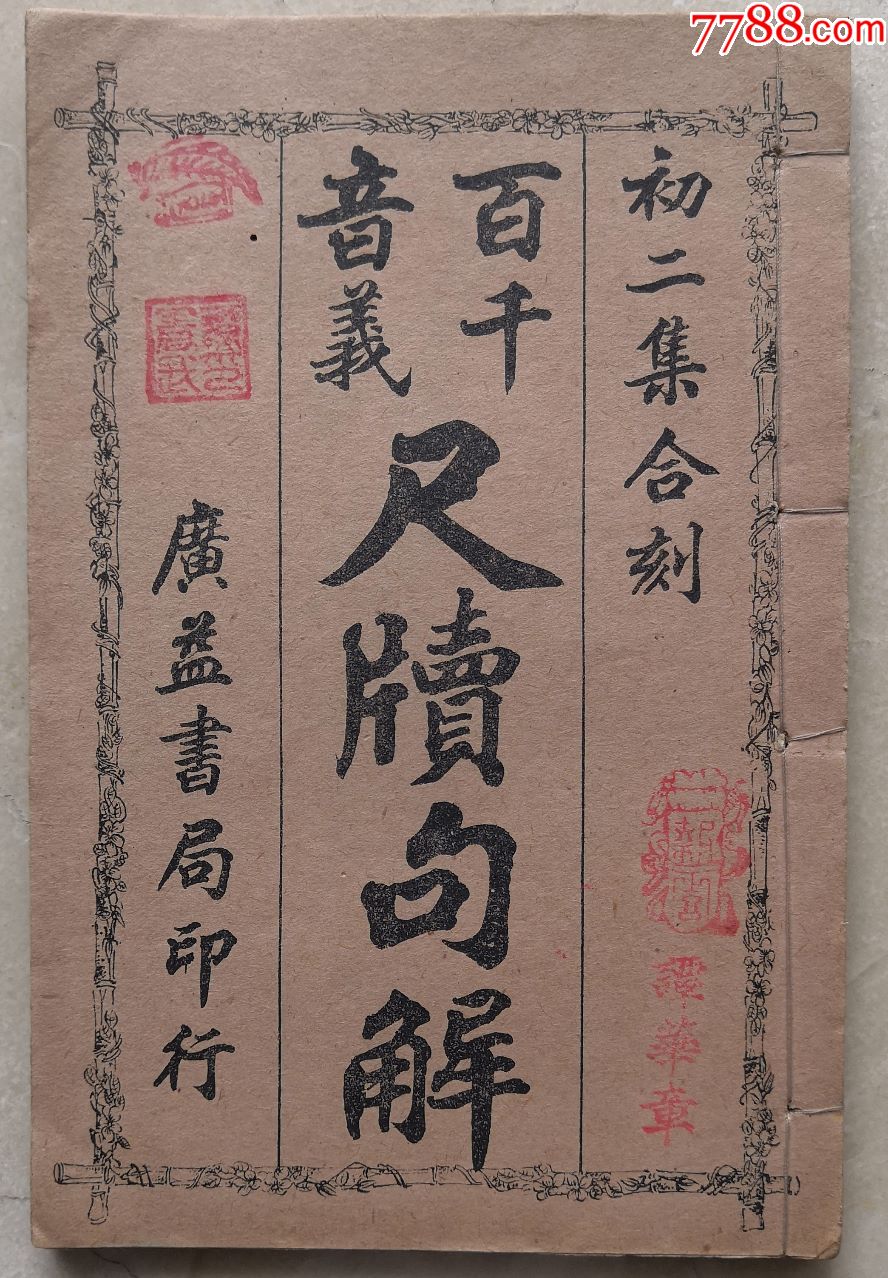 7788.com
初二集合刻
百千
音義
尺牘句解
廣益書局印行
譚華章